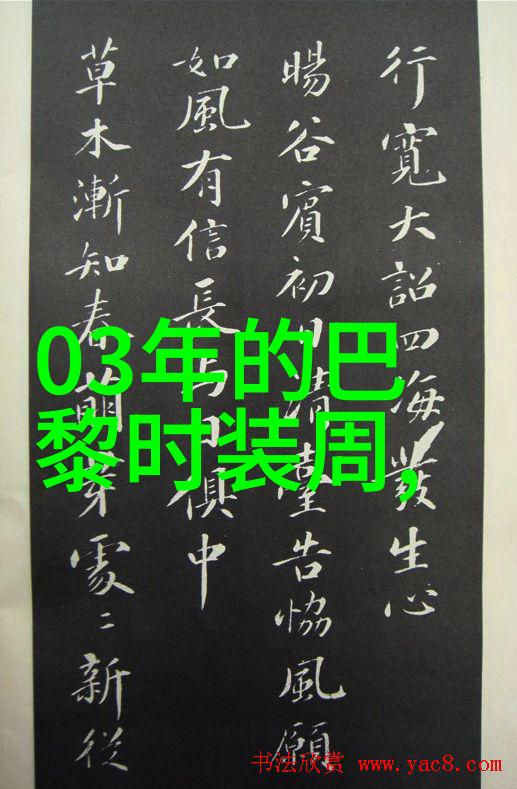 行寬大詔四海發生心
暘谷賓初日清臺告協風願
如風有信長與日俱中
草木漸知春萌芽處〻新從
03年的巴
黎时装周,
书法欣赏 www.yac8.com